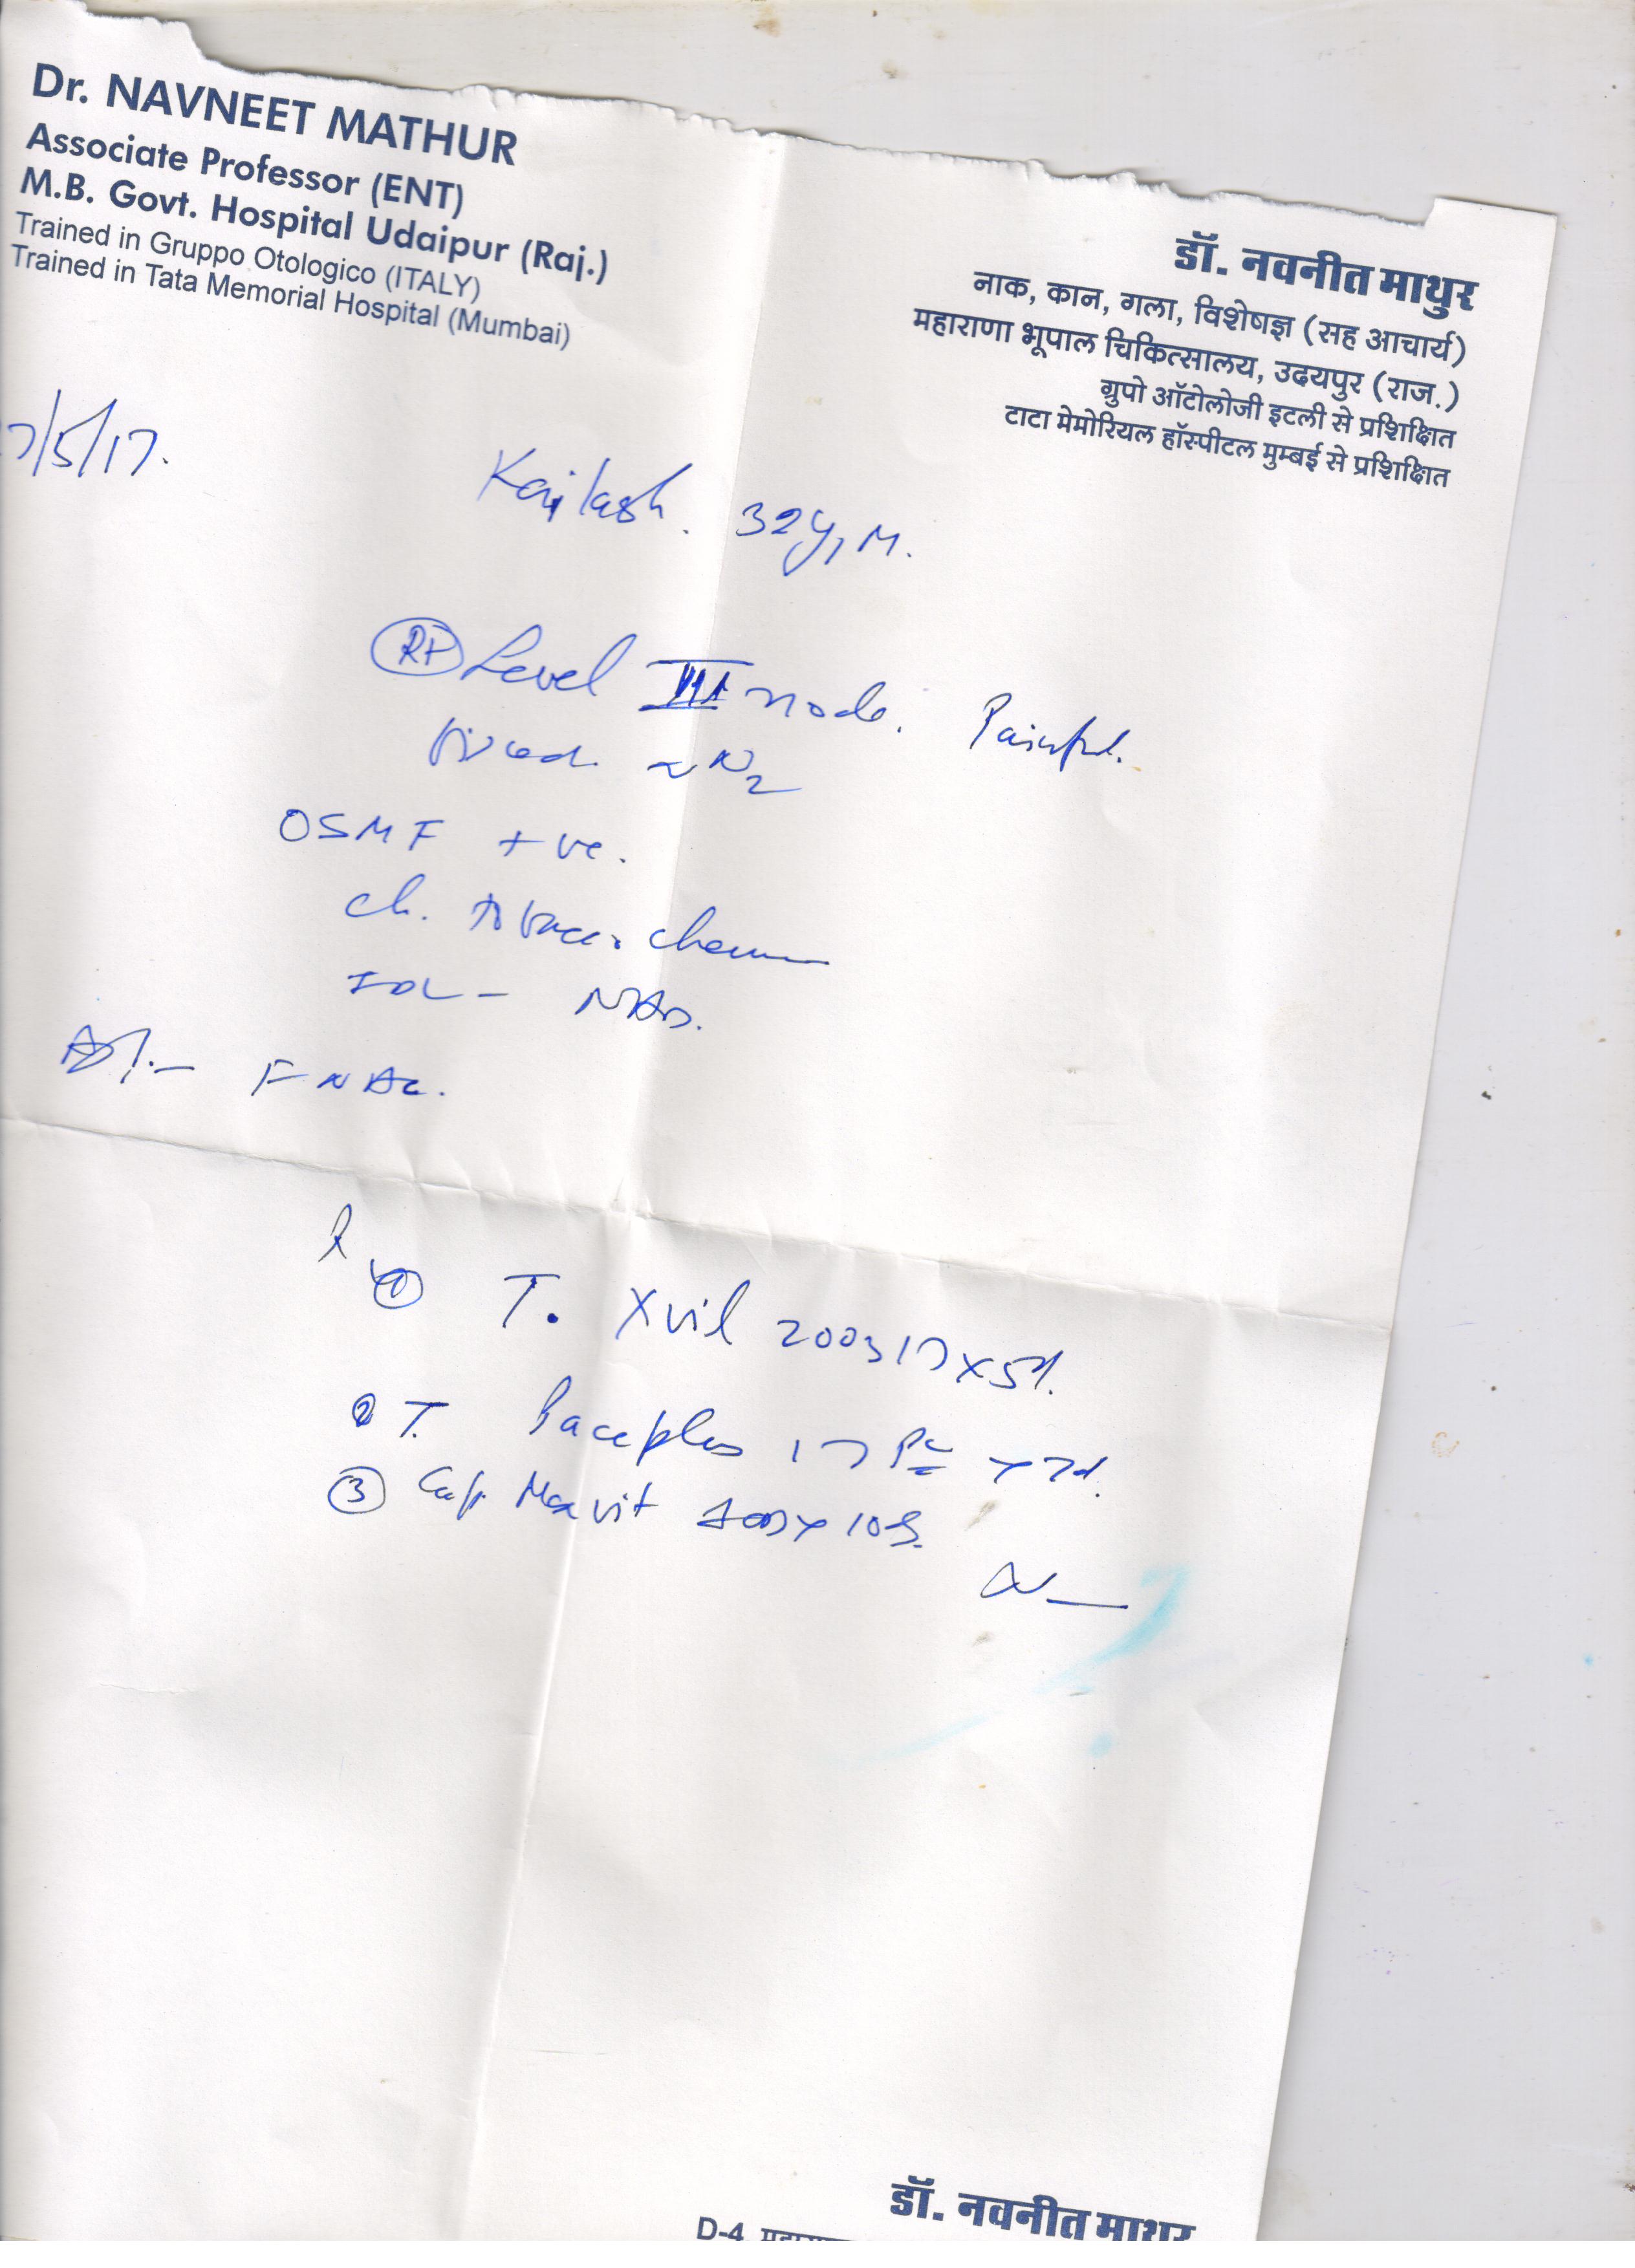 Dr. NAVNEET MATHUR
Associate Professor (ENT)
M.B. Govt. Hospital Udaipur (Raj.)
Trained in Gruppo Otologico (ITALY)
Trained in Tata Memorial Hospital (Mumbai)
डॉ. नवनीत माथुर
नाक, कान, गला, विशेषज्ञ (सह आचार्य)
महाराणा भूपाल चिकित्सालय, उदयपुर (राज.)
ग्रुपो ऑटोलोजी इटली से प्रशिक्षित
टाटा मेमोरियल हॉस्पीटल मुम्बई से प्रशिक्षित
7/5/17.
Kailash. 32y, M.
Rt Level III node. Painful.
fixed. N2
OSMF +ve.
ch. tobacco chewer
IDL - NAD.
FNAC.
① T. Xvil 200
② T. Paceplus
③ Cap. Maxvit
डॉ. नवनीत माथुर
D-4,